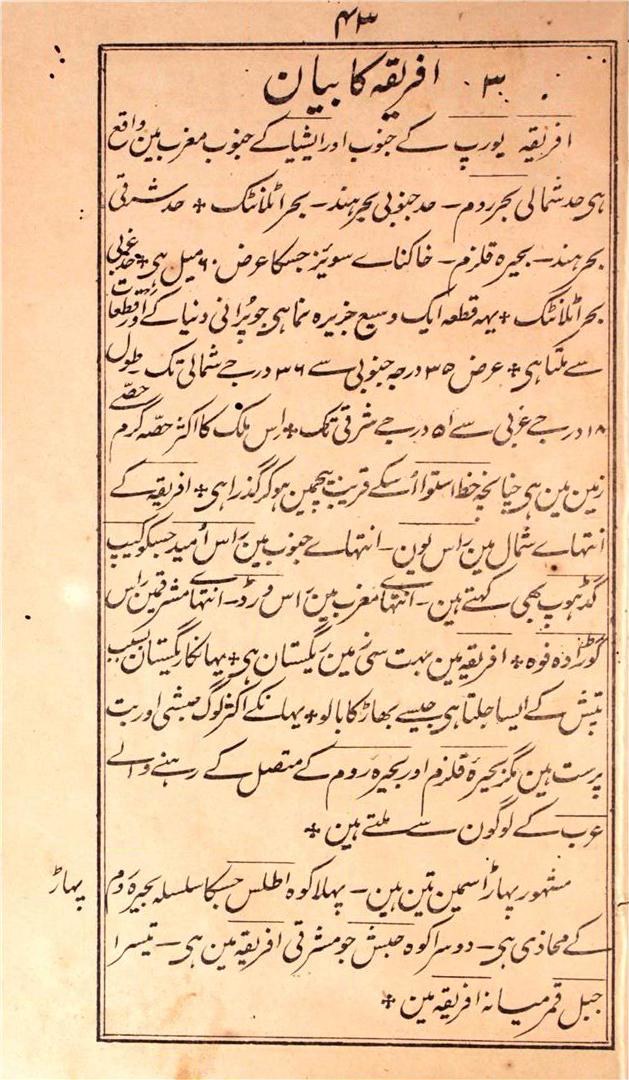 ۴۳
۳۔ افریقہ کا بیان
افریقہ یورپ کے جنوب اور ایشیا کے جنوب مغرب مین واقع
ہی حد شمالی بحر روم ۔ حد جنوبی بحر ہند ۔ بحر اٹلانٹک + حد شرقی
بحر ہند ۔ بحیرہ قلزم ۔ خاکناے سویز جسکا عرض ۶۰ میل ہی + حد غربی
بحر اٹلانٹک + یہہ قطعہ ایک وسیع جزیرہ نما ہی جو پرانی دنیا کے اور قطعات
سے ملتا ہی + عرض ۳۵ درجہ جنوبی سے ۳۶ درجے شمالی تک ۔ طول
۱۸ درجے غربی سے ۵۱ درجے شرقی تک + اس ملک کا اکثر حصہ گرم حصے
زمین مین ہی چنانچہ خط استوا اسکے قریب بیچمین ہو کر گذرا ہی + افریقہ کے
انتہاے شمال مین راس بون ۔ انتہاے جنوب مین راس امید جسکو کیپ
گڈ ہوپ بھی کہتے ہین ۔ انتہاے مغرب مین راس ورڈ ۔ انتہاے مشرقمین راس
گوڑادہ فوہ + افریقہ مین بہت سی زمین ریگستان ہی + یہانکا ریگستان بسبب
تپش کے ایسا جلتا ہی جیسے بھاڑ کا بالو + یہانکے اکثر لوگ حبشی اور بت
پرست ہین مگر بحیرۂ قلزم اور بحیرہ روم کے متصل کے رہنے والے
عرب کے لوگون سے ملتے ہین +
مشہور پہاڑ اسمین تین ہین ۔ پہلا کوہ اطلس جسکا سلسلہ بحیرہ روم
پہاڑ
کے محاذی ہی ۔ دوسرا کوہ حبش جو مشرقی افریقہ مین ہی ۔ تیسرا
جبل قمر میانہ افریقہ مین +